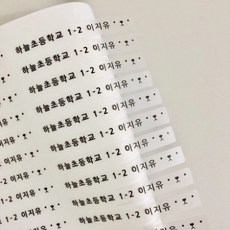 하늘초등학교 1-2 이지유
하늘초등학교 1-2 이지유
하늘초등학교 1-2 이지유
하늘초등학교 1-2 이지유
하늘초등학교 1-2 이지유
하늘초등학교 1-2 이지유
하늘초등학교 1-2 이지유
하늘초등학교 1-2 이지유
하늘초등학교 1-2 이지유